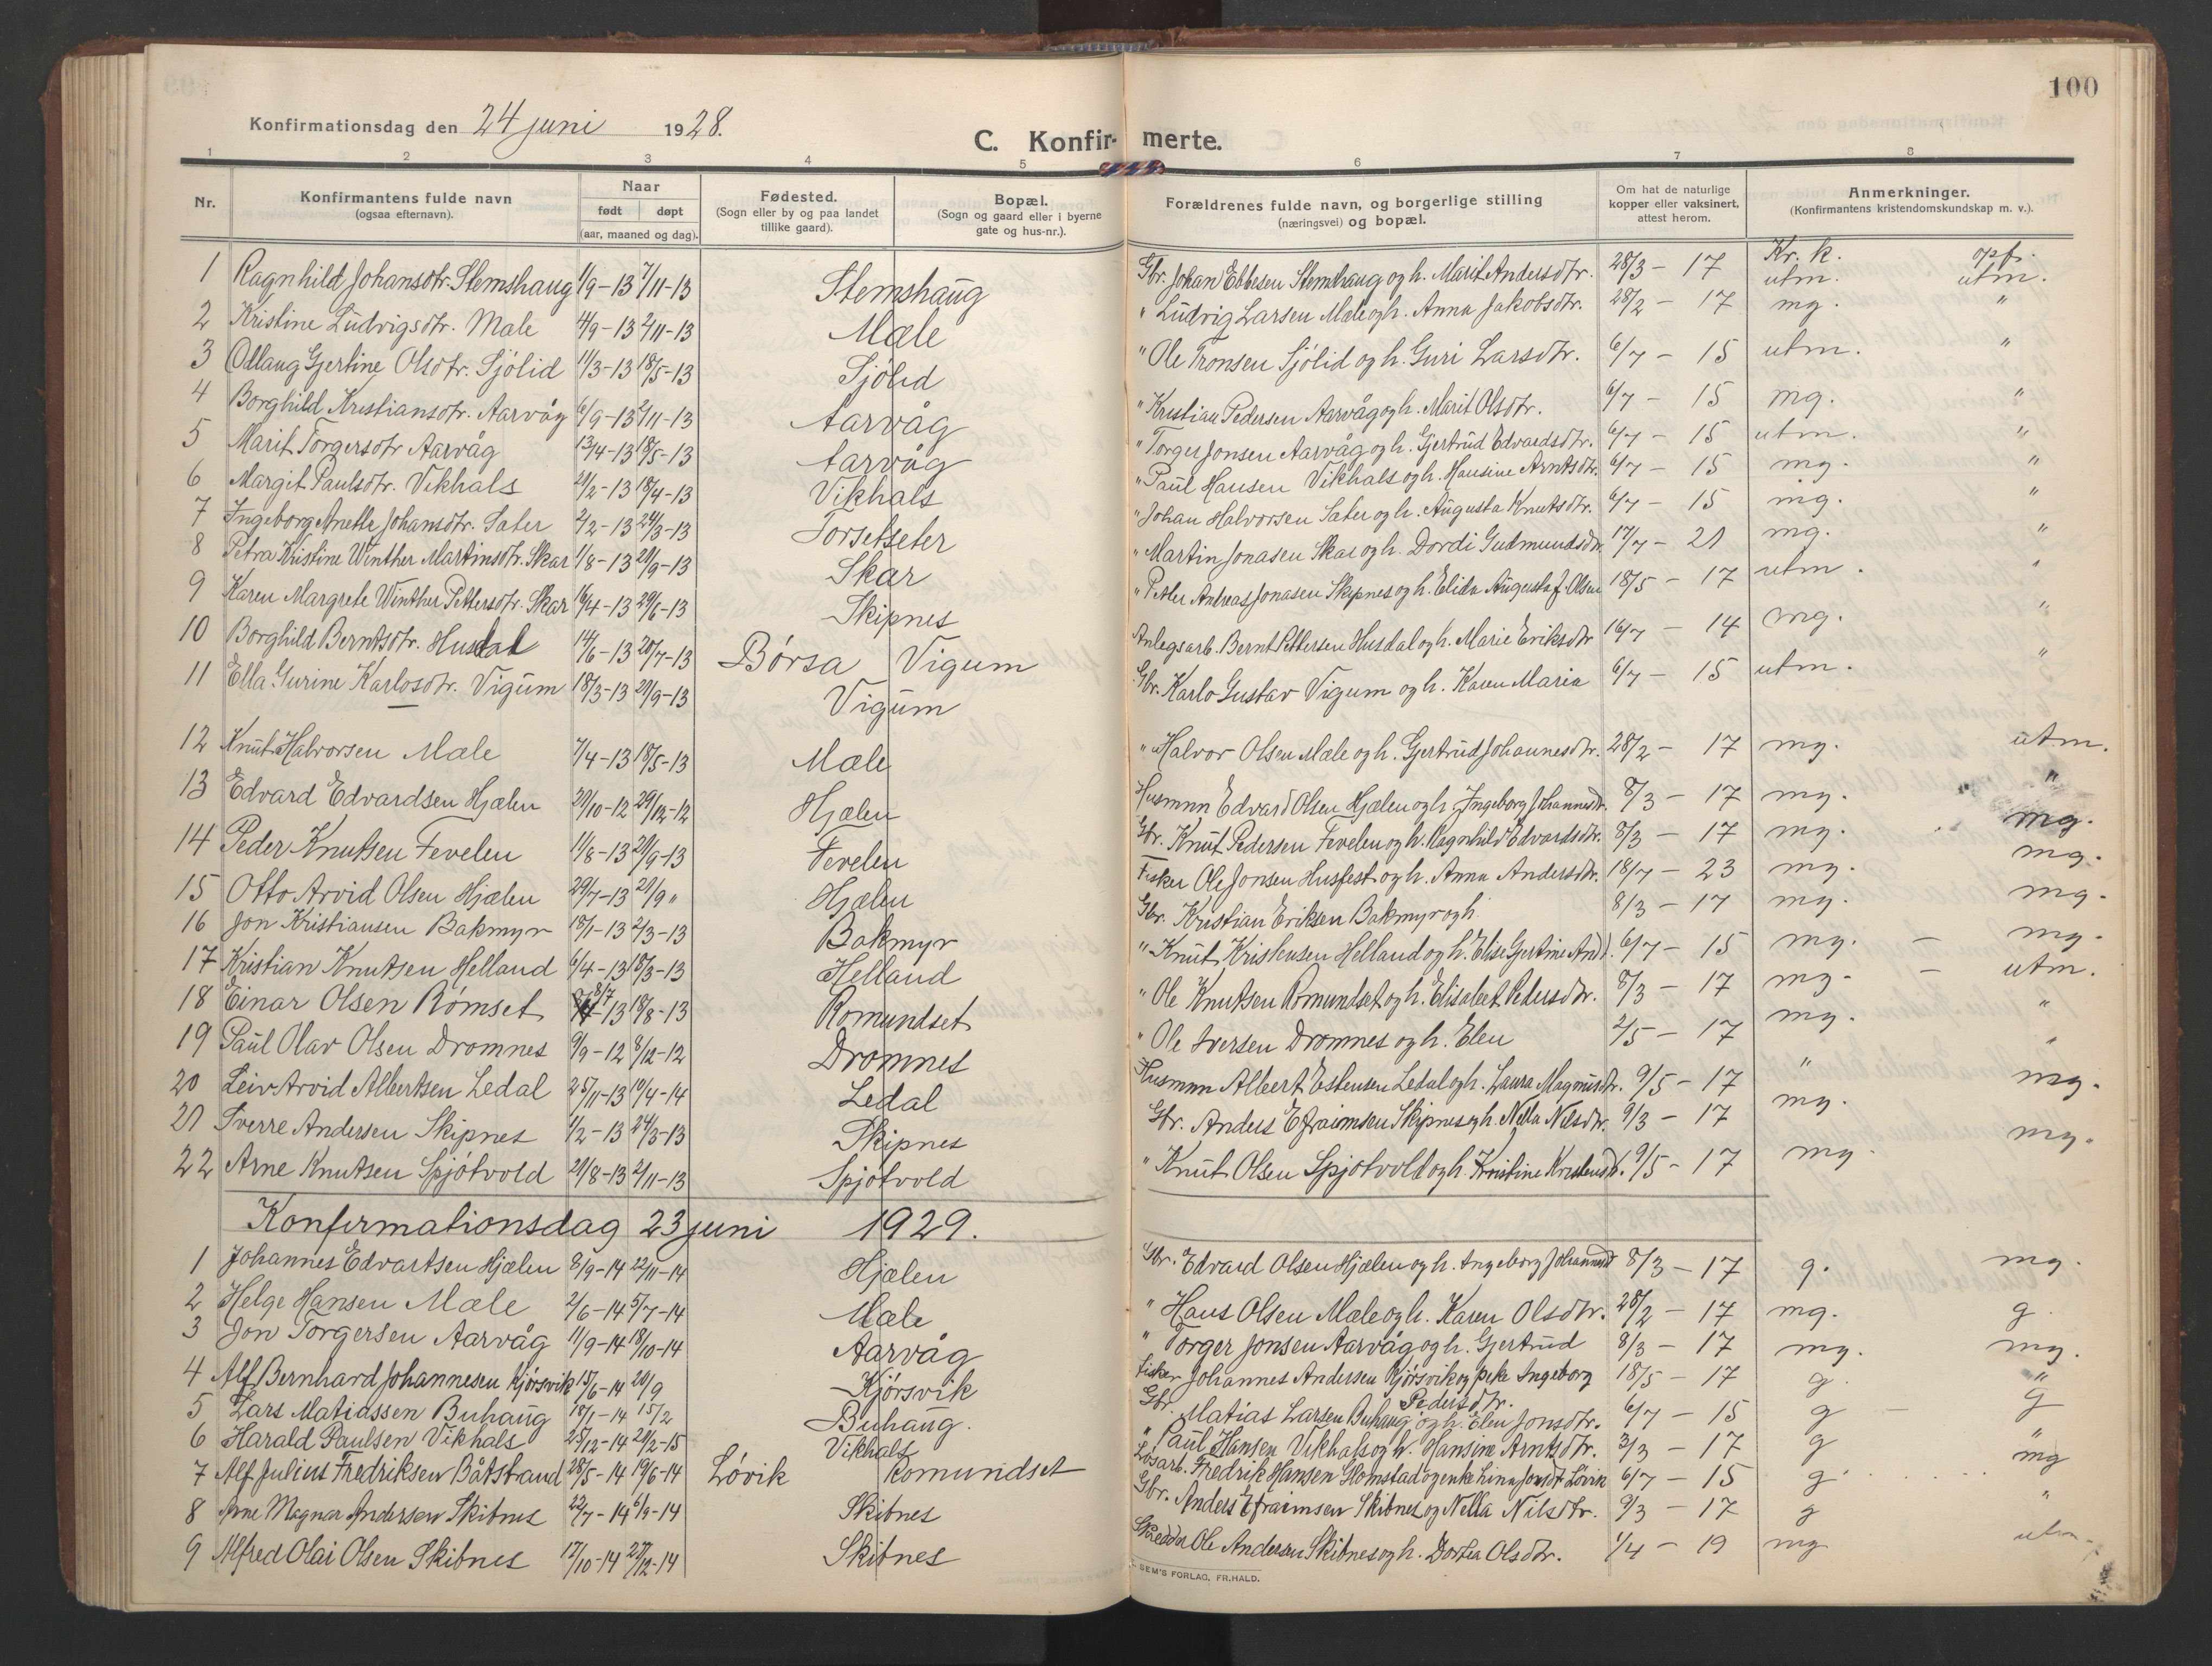 100
Konfirmationsdag den 24 juni 1928.
C. Konfir- merte.
1 2 3 4 5 6 7 8
Nr. Konfirmantens fulde navn (ogsaa efternavn). Naar født døpt (aar, maaned og dag). Fødested. (Sogn eller by og paa landet tillike gaard). Bopæl. (Sogn og gaard eller i byerne gate og hus-nr.). Forældrenes fulde navn, og borgerlige stilling (næringsvei) og bopæl. Om hat de naturlige kopper eller vaksinert, attest herom. Anmerkninger. (Konfirmantens kristendomskundskap m. v.).
Kr. k. opf.
1 Ragnhild Johansdtr. Stemshaug 1/9-13 7/11-13 Stemshaug Gbr. Johan Ebbesen Stemshaug og h. Marit Andersdtr. 28/3 - 17 utm. utm.
2 Kristine Ludvigsdtr. Mæle 4/9-13 2/11-13 Mæle " Ludvig Larsen Mæle og h. Anna Jakobsdtr. 28/2 - 17 mg. "
3 Odlaug Gjertine Olsdtr. Sjölid 11/3-13 18/5-13 Sjölid " Ole Tronsen Sjölid og h. Guri Larsdtr. 6/7 - 15 utm. "
4 Borghild Kristiansdtr. Aarvåg 6/9-13 2/11-13 Aarvåg " Kristian Pedersen Aarvåg og h. Marit Olsdtr. 6/7 - 15 mg. "
5 Marit Torgersdtr Aarvåg 13/4-13 18/5-13 Aarvåg " Torger Jonsen Aarvåg og h. Gjertrud Edvardsdtr. 6/7 - 15 utm. "
6 Margit Paulsdtr. Vikhals 21/2-13 18/4-13 Vikhals " Paul Hansen Vikhals og h. Hansine Arntsdtr. 6/7 - 15 mg. "
7 Ingeborg Anette Johansdtr. Sæter 2/2-13 24/3-13 Torsetseter " Johan Halvorsen Sæter og h. Augusta Knutsdtr. 6/7 - 15 mg. "
8 Petra Kristine Winther Martinsdtr. Skar 1/8-13 21/9-13 Skar " Martin Jonasen Skar og h. Dordi Gudmundsdtr. 17/7 - 21 mg. "
9 Karen Margrete Winther Pettersdtr. Skar 16/4-13 29/6-13 Skipnes " Petter Andreas Jonasen Skipnes og h. Elida Augusta f. Olsen 18/5 - 17 utm. "
10 Borghild Berntsdtr. Husdal 14/6-13 20/7-13 Börsa Vigum Anlegsarb. Bernt Pettersen Husdal og h. Marie Eriksdtr 16/7 - 14 mg. "
11 Ella Gurine Karlosdtr. Vigum 18/3-13 21/9-13 Vigum Gbr. Karlo Gustav Vigum og h. Karen Maria 6/7 - 15 utm. "
12 Knut Halvorsen Mæle 7/4-13 18/5-13 Mæle " Halvor Olsen Mæle og h. Gjertrud Johannesdtr. 28/2 - 17 mg. utm.
13 Edvard Edvardsen Hjælen 20/10-12 29/12-12 Hjælen Husmnn Edvard Olsen Hjælen og h. Ingeborg Johannesdtr. 8/3 - 17 mg. "
14 Peder Knutsen Fevelen 11/8-13 21/9-13 Fevelen Gbr. Knut Pedersen Fevelen og h. Ragnhild Edvardsdtr. 8/3 - 17 mg. mg.
15 Otto Arvid Olsen Hjælen 29/7-13 21/9 " Hjælen Fisker Ole Jonsen Husfest og h. Anna Andersdtr. 18/7 - 23 mg. mg.
16 Jon Kristiansen Bakmyr 18/1-13 2/3-13 Bakmyr Gbr. Kristian Eriksen Bakmyr og h. 8/3 - 17 mg. mg.
17 Kristian Knutsen Helland 6/4-13 18/3-13 Helland " Knut Kristensen Helland og h. Elise Gjertine And. 6/7 - 15 mg. - mg.
18 Einar Olsen Römset 8/7 13 10/8-13 Romundset " Ole Knutsen Romundset og h. Elisabet Pedersdtr. 8/3 - 17 mg - - utm.
19 Paul Olav Olsen Dromnes 9/9-12 8/12-12 Dromnes " Ole Iversen Dromnes og h. Elen 2/5 - 17 mg. "
20 Leiv Arvid Albertsen Ledal 25/11-13 19/4-14 Ledal Husmnn Albert Estensen Ledal og h. Laura Magnusdtr. 9/5 - 17 " "
21 Sverre Andersen Skipnes 1/2-13 24/3-13 Skipnes Gbr. Anders Efraimsen Skipnes og h. Nella Nilsdtr. 9/3 - 17 mg. mg.
22 Arne Knutsen Spjötvold 21/8-13 2/11-13 Spjötvold " Knut Olsen Spjötvold og h. Kristine Kristensd. 9/5 - 17 mg. mg.
Konfirmationsdag 23 juni 1929.
1 Johannes Edvartsen Hjælen 8/9-14 22/11-14 Hjælen Gbr. Edvard Olsen Hjælen og h. Ingeborg Johannesd 8/3 - 17 g. mg.
2 Helge Hansen Mæle 2/6-14 5/7-14 Mæle " Hans Olsen Mæle og h. Karen Olsdtr. 28/2 - 17 mg. g.
3 Jon Torgersen Aarvåg 11/9-14 18/10-14 Aarvåg " Torger Jonsen Aarvåg og h. Gjertrud 8/3 - 17 mg. mg.
4 Alf Bernhard Johannesen Kjörsvik 15/6-14 20/9 Kjörsvik Fisker Johannes Andersen Kjörsvik og pike Ingeborg Pedersdtr. 18/5 - 17 g. "
5 Lars Matiassen Buhaug 18/1-14 15/2 Buhaug. Gbr. Matias Larsen Buhaug og h. Elen Jonsdtr. 6/7 - 15 g - g
6 Harald Paulsen Vikhals 25/12-14 21/2-15 Vikhals " Paul Hansen Vikhals og h. Hansine Arntsdtr. 3/3 - 17 g "
7 Alf Julius Fredriksen Båtstrand 28/5-14 19/6-14 Lövik Romundset Lösarb. Fredrik Hansen Holmstad og enke Lina Jonsdt Lövik 6/7 - 15 g. mg
8 Arne Magnar Andersen Skibnes 22/7-14 6/9-14 Skibnes Gbr. Anders Efraimsen Skibnes og Nella Nilsdtr. 9/3 - 17 g "
9 Alfred Olai Olsen Skibnes 17/10-14 27/12-14 Skibnes Skredder Ole Andersen Skibnes og h. Dortea Olsdtr. 1/4 - 19 mg utm.
SEM'S FORLAG, FR.HALD.